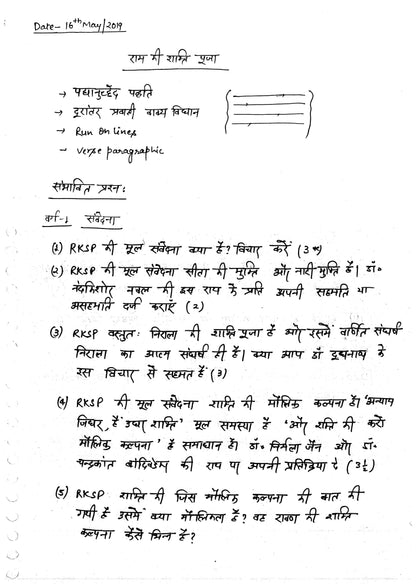 Date- 16th May/2019
राम की शक्ति पूजा
→ पद्यानुच्छेद पद्धति
→ दूरांतर प्रवाही वाक्य विधान
→ Run on lines
→ verse paragraphic
संभावित प्रश्न:
वर्ग-1 संवेदना
(1) RKSP की मूल संवेदना क्या है? विचार करें (3*)
(2) RKSP की मूल संवेदना सीता की मुक्ति और नारी मुक्ति है। डॉ.
नंदकिशोर नवल की इस राय के प्रति अपनी सहमति या
असहमति दर्ज कराएं (2)
(3) RKSP वस्तुतः निराला की शक्ति पूजा है और इसमें वर्णित संघर्ष
निराला का आत्म संघर्ष ही है। क्या आप डॉ दूधनाथ के
इस विचार से सहमत हैं (3)
(4) RKSP की मूल संवेदना शक्ति की मौलिक कल्पना है। 'अन्याय
जिधर, हैं उधर शक्ति' मूल समस्या है 'और शक्ति की करो
मौलिक कल्पना' है समाधान है। डॉ. निर्मला जैन और डॉ.
चन्द्रकांत बांदिवडेकर की राय पर अपनी प्रतिक्रिया दें (3½)
(5) RKSP शक्ति की जिस मौलिक कल्पना की बात की
गयी है उसमें क्या मौलिकता है? वह रावण की शक्ति
कल्पना कैसे भिन्न है?